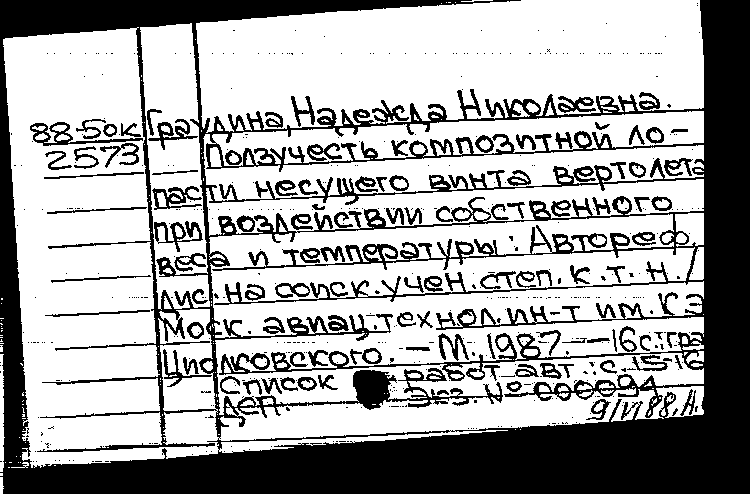 88-5ок Граудина, Надежда Николаевна.
2573 Ползучесть композитной ло-
пасти несущего винта вертолета
при воздействии собственного
веса и температуры: Автореф.
дис. на соиск. учен. степ. к.т.н./
Моск. авиац. технол. ин-т им. К.Э
Циолковского. — М., 1987. — 16с.: гра
Список работ авт.: с. 15-16
ДСП. Экз. № 000094
9/VI 88. А.